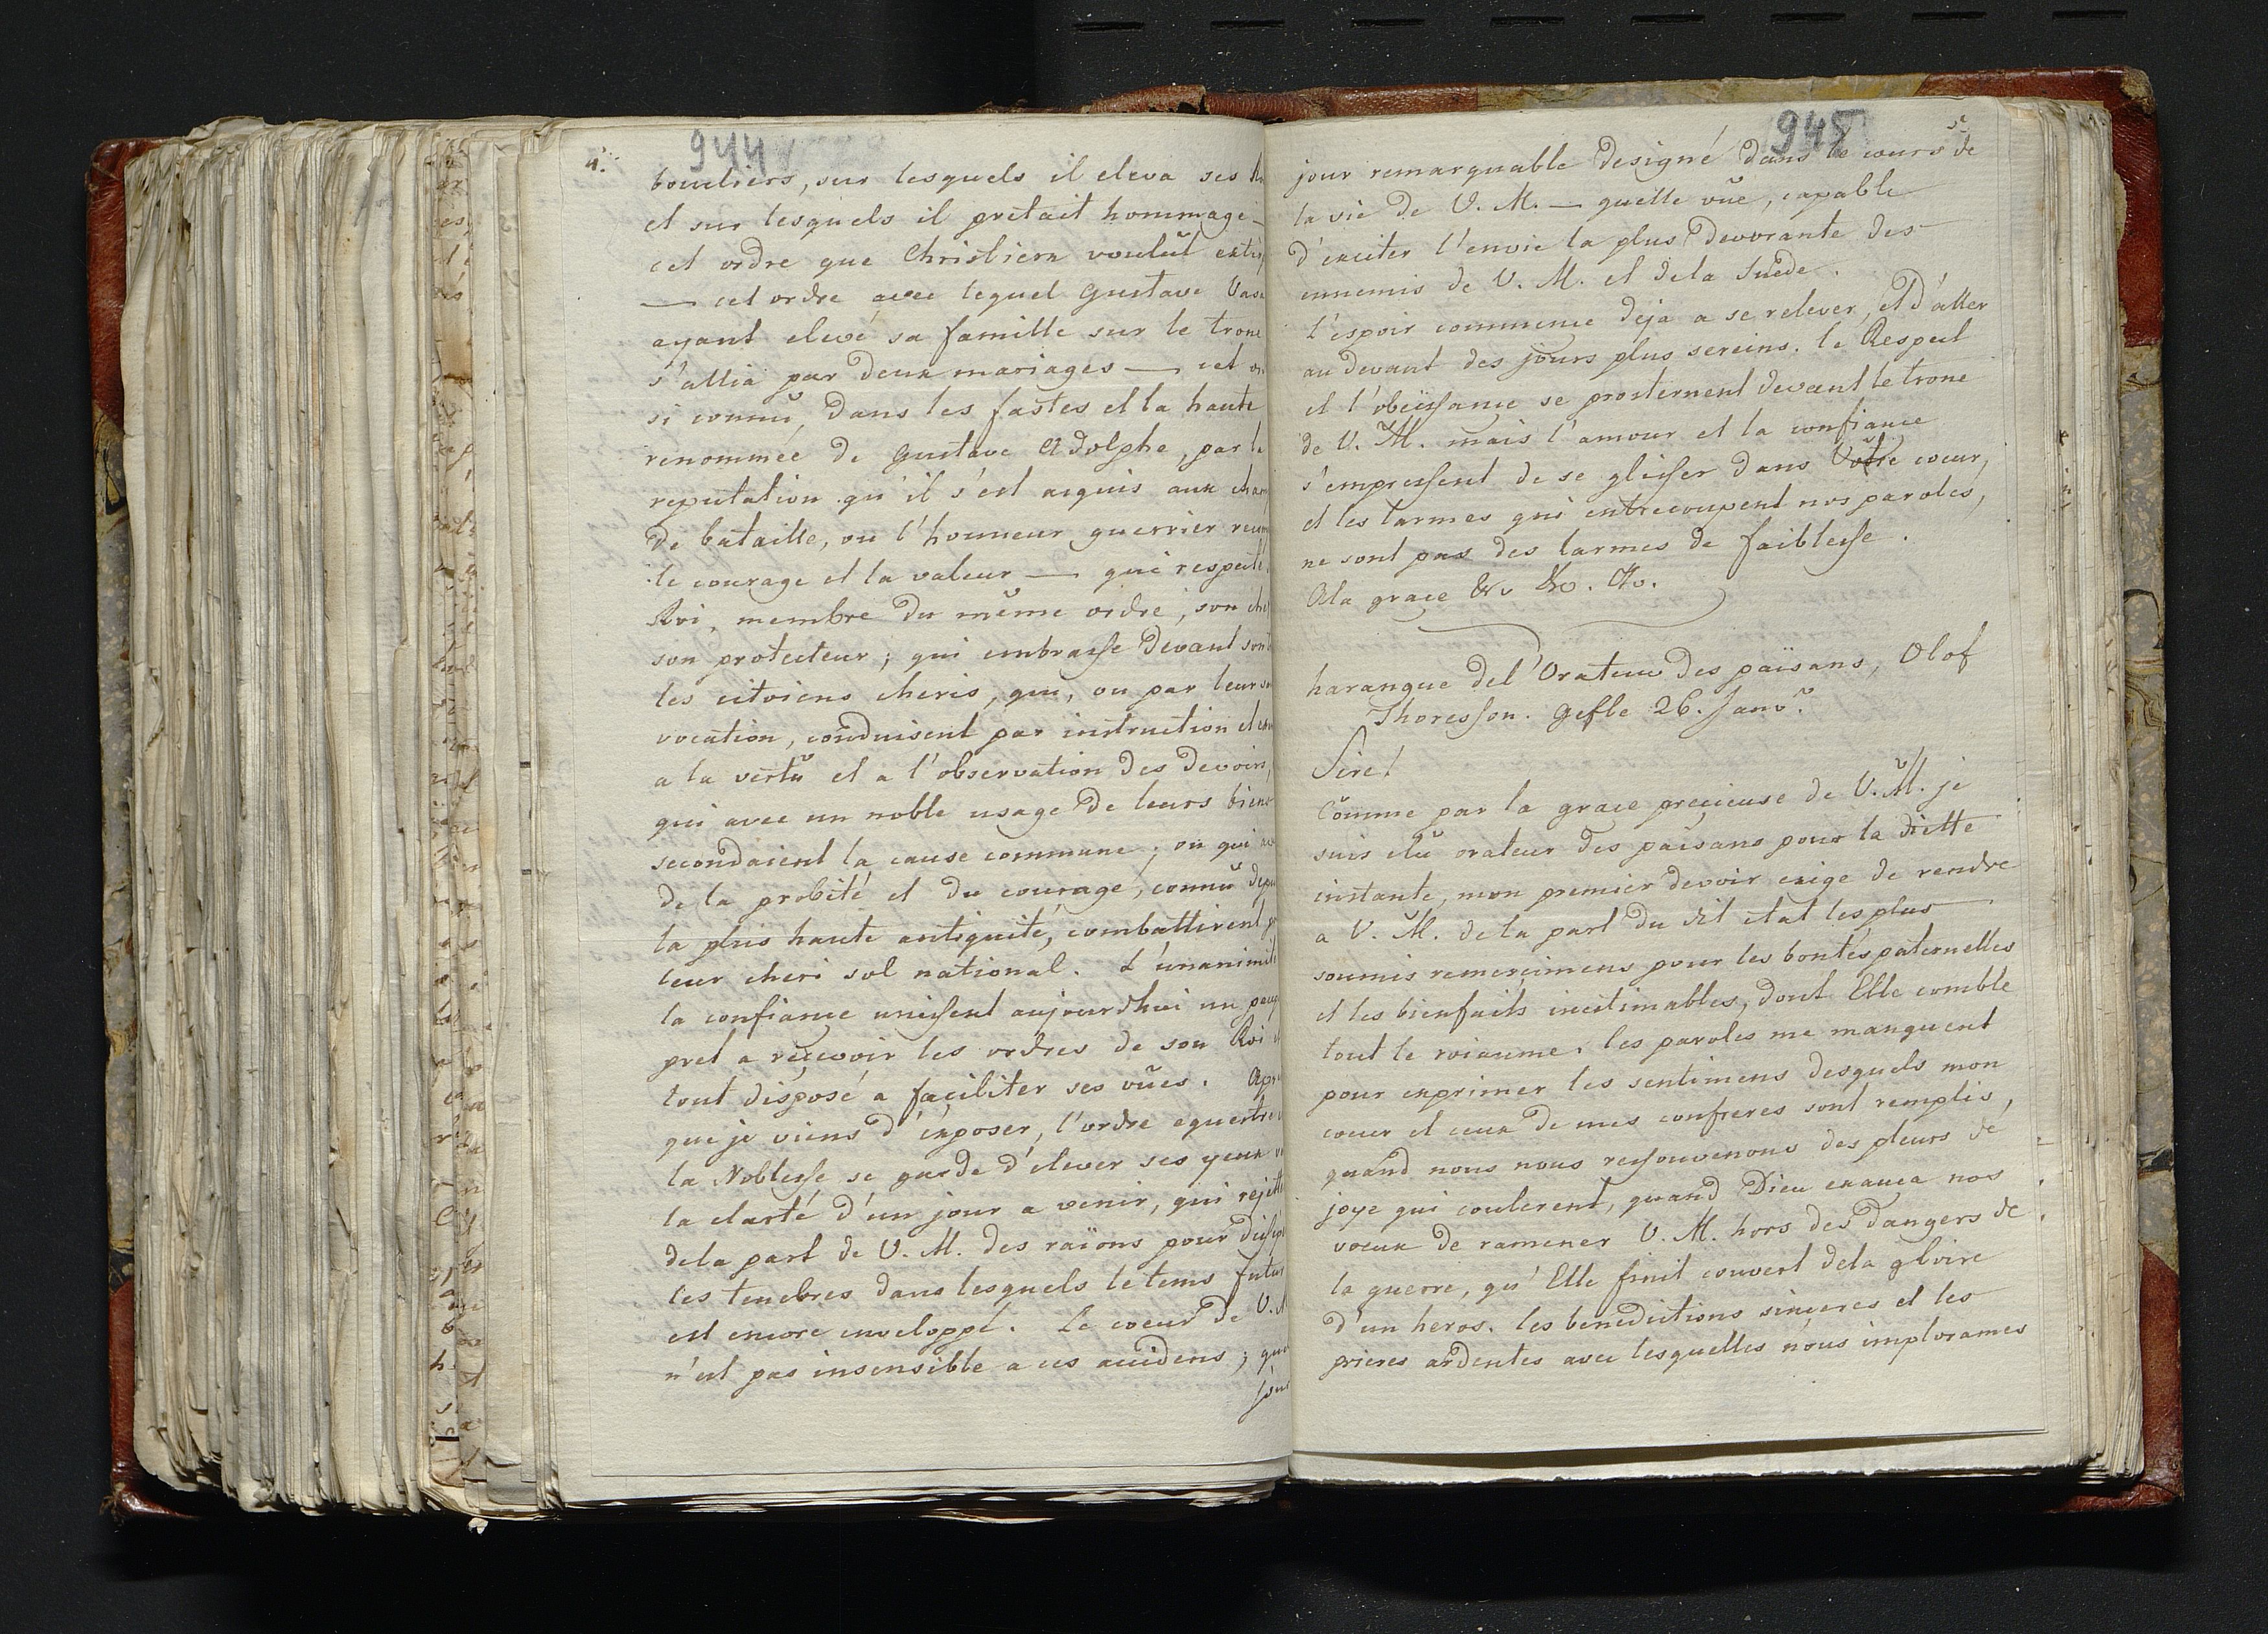 944
4.
boucliers, sur lesquels il eleva ses
et sur lesquels il pretait hommage —
cet ordre que Christiern voulut
— cet ordre avec lequel Gustave Vasa
ayant elevé sa famille sur le trone
s'allia par deux mariages — cet
si connu, dans les fastes et la haute
renommée de Gustave Adolphe, par la
reputation qu'il s'est acquis aux
de bataille, ou l'honneur guerrier
le courage et la valeur — qui respecte
Roi, membre du même ordre, son
son protecteur; qui embrasse devant son
les citoiens cheris, qui, ou par leur
vocation, conduisent par instruction et
a la vertu et a l'observation des devoirs,
qui avec un noble usage de leurs biens
secondaient la cause commune; ou qui
de la probité et du courage, connu
la plus haute antiquité, combattirent
leur cheri sol national. L'unanimité
la confiance unissent aujourdhui un
pret a reçevoir les ordres de son Roi
tout disposé a faciliter ses vües.
que je viens d'exposer, l'ordre equestre
la Noblesse se garde d'elever ses yeux
la clarté d'un jour a venir, qui
dela part de V. M. des raïons pour
les tenebres dans lesquels le tems futur
est encore enveloppé. Le coeur de V. M
n'est pas insensible a ces accidens;
jour
945
5
jour remarquable designé dans le cours de
la vie de V. M. — quelle vuë, capable
d'exciter l'envie la plus devorante des
ennemis de V. M. et dela Suede.
l'espoir commence deja a se relever, et d'aller
au devant des jours plus sereins. le Respect
et l'obeissance se prosternent devant le trone
de V. M. mais l'amour et la confiance
s'empressent de se glisser dans Votre coeur,
et les larmes qui entrecoupent nos paroles,
ne sont pas des larmes de faiblesse.
A la grace &c &c. &c.
harangue del'Orateur des païsans, Olof
Thoresson. Gefle 26. Janv.
Sire!
Comme par la grace precieuse de V. M. je
suis elu orateur des païsans pour la diette
instante, mon premier devoir exige de rendre
a V. M. dela part du dit etat les plus
soumis remerçimens pour les bontés paternelles
et les bienfaits inestimables, dont Elle comble
tout le roiaume. les paroles me manquent
pour exprimer les sentimens desquels mon
coeur et ceux de mes confreres sont remplis,
quand nous nous ressouvenons des pleurs de
joye qui coulerent, quand Dieu exauca nos
voeux de ramener V. M. hors des dangers de
la guerre, qu'Elle finit couvert dela gloire
d'un heros. les benedictions sinceres et les
prieres ardentes avec lesquelles nous implorames